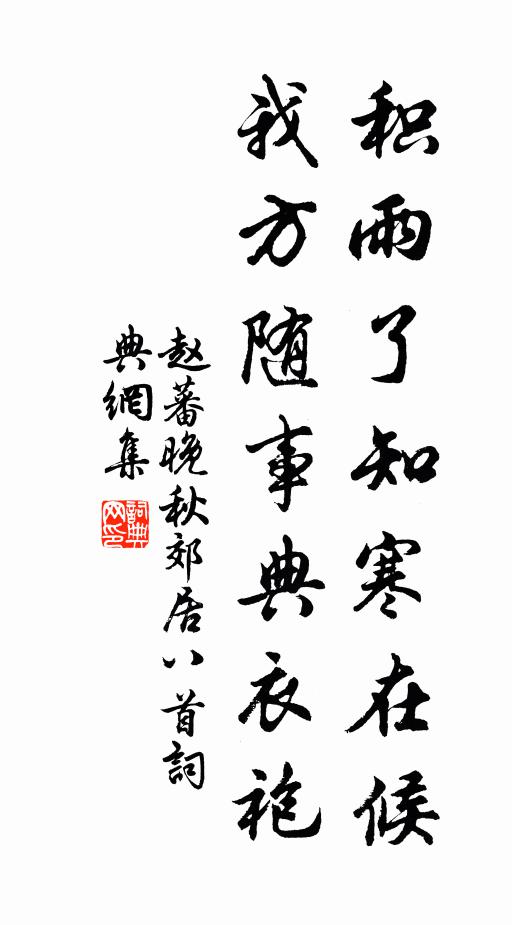 积雨了知寒在候
我方随事典衣袍
赵蕃晚秋郊居八首詞
典網集
詞典
网印